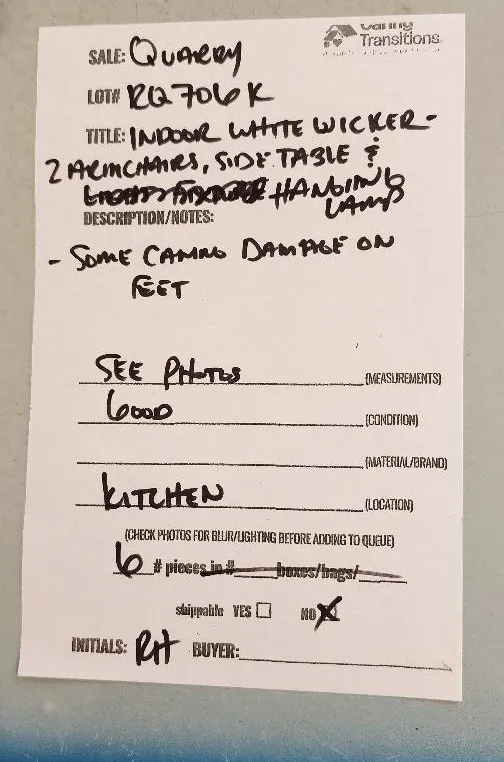 Caring
Transitions
SALE: QUARRY
LOT# RQ706K
TITLE: INDOOR WHITE WICKER-
2 ARMCHAIRS, SIDE TABLE &
HANGING
LAMP
DESCRIPTION/NOTES:
- SOME CANING DAMAGE ON
FEET
SEE PHOTOS (MEASUREMENTS)
GOOD (CONDITION)
(MATERIAL/BRAND)
KITCHEN (LOCATION)
(CHECK PHOTOS FOR BLUR/LIGHTING BEFORE ADDING TO QUEUE)
6 # pieces in # boxes/bags/
shippable YES ☐ NO ☒
INITIALS: RH BUYER: